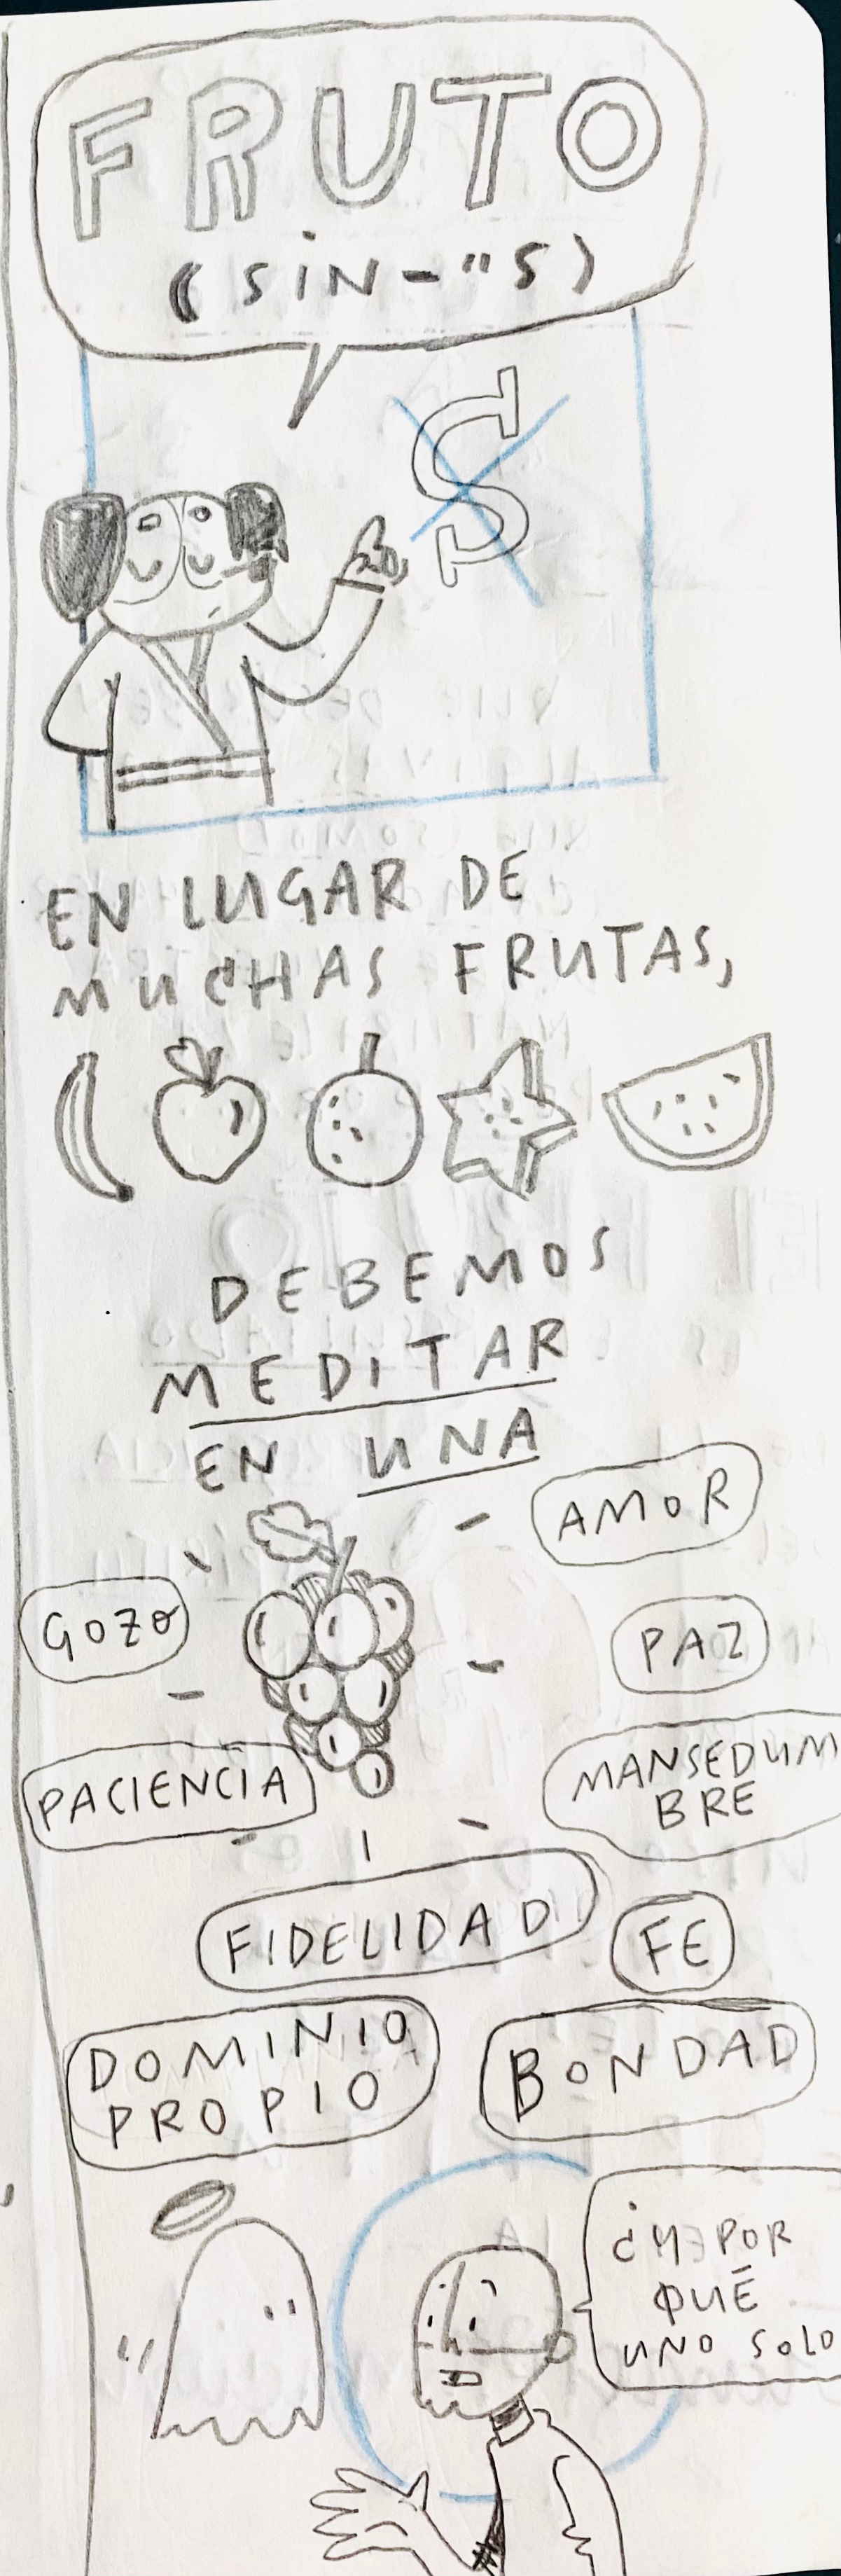 FRUTO
(SIN-"S)
S
EN LUGAR DE
MUCHAS FRUTAS,
DEBEMOS
MEDITAR
EN UNA
AMOR
GOZO
PAZ
PACIENCIA
MANSEDUM
BRE
FIDELIDAD
FE
DOMINIO
PROPIO
BONDAD
¿Y POR
QUÉ
UNO SOLO